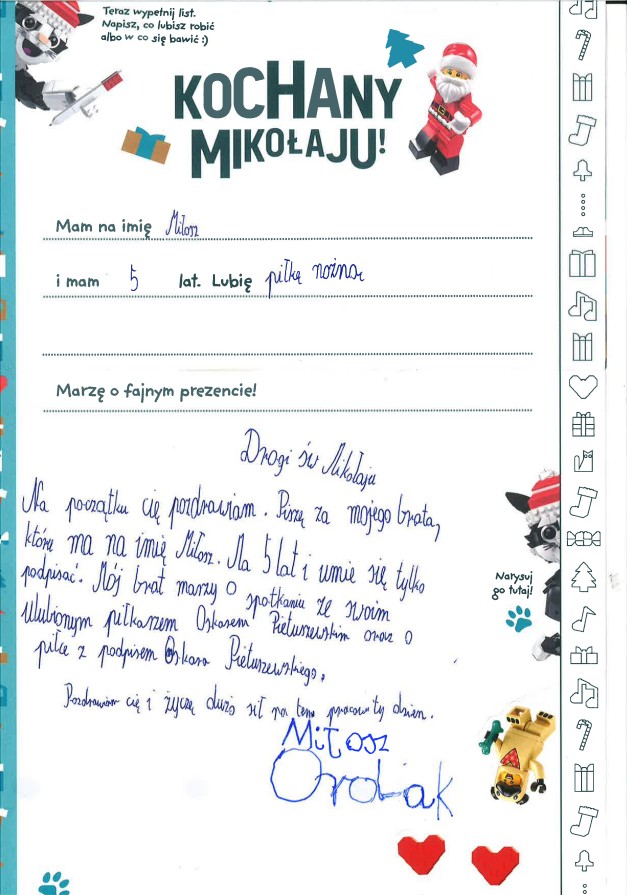 Teraz wypełnij list.
Napisz, co lubisz robić
albo w co się bawić :)
KOCHANY
MIKOŁAJU!
Mam na imię Miłosz
i mam 5 lat. Lubię piłkę nożną
Marzę o fajnym prezencie!
Drogi św Mikołaju
Na początku cię pozdrawiam. Piszę za mojego brata,
który ma na imię Miłosz. Ma 5 lat i umie się tylko
podpisać. Mój brat marzy o spotkaniu ze swoim
ulubionym piłkarzem Oskarem Pietuszewskim oraz o
piłce z podpisem Oskara Pietuszewskiego.
Pozdrawiam cię i życzę dużo sił na ten pracowity dzień.
Miłosz
Orobak
Narysuj
go tutaj!